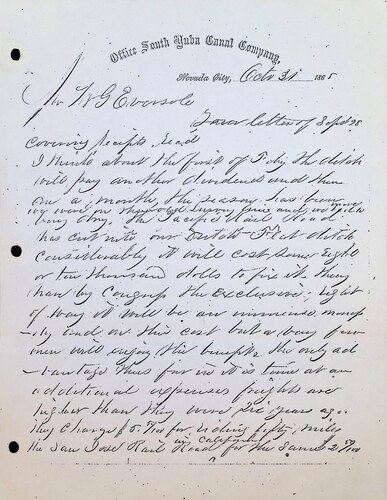 Office South Yuba Canal Company,
Nevada City, Octr 31 1865
Mr W G Eversole
Your letter of Sept 25
covering receipts Recd
I think about the first of Feby the ditch
will pay another dividend and then
one a month, the season has been
very dry. The Pacific Rail Road
has cut into our Dutch Flat ditch
considerably it will cost some Eight
or ten thousand dolls to fix it. they
have by Congress the Exclusive right
of way it will be an immense monop
-ly and on this cost but a very few
men will enjoy the benefits the only ad
-vantage thus far in it is time at an
additional expenses frights are
higher than they were six years ago
they Charge $5 /100 for riding fifty miles
in California
the San Jose Rail Road for the same $2 50/100